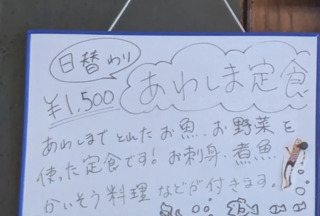 日替わり
あわしま定食
¥1,500
あわしまで とれた お魚、お野菜を
使った定食です! お刺身、煮魚
かいそう料理 などが付きます。